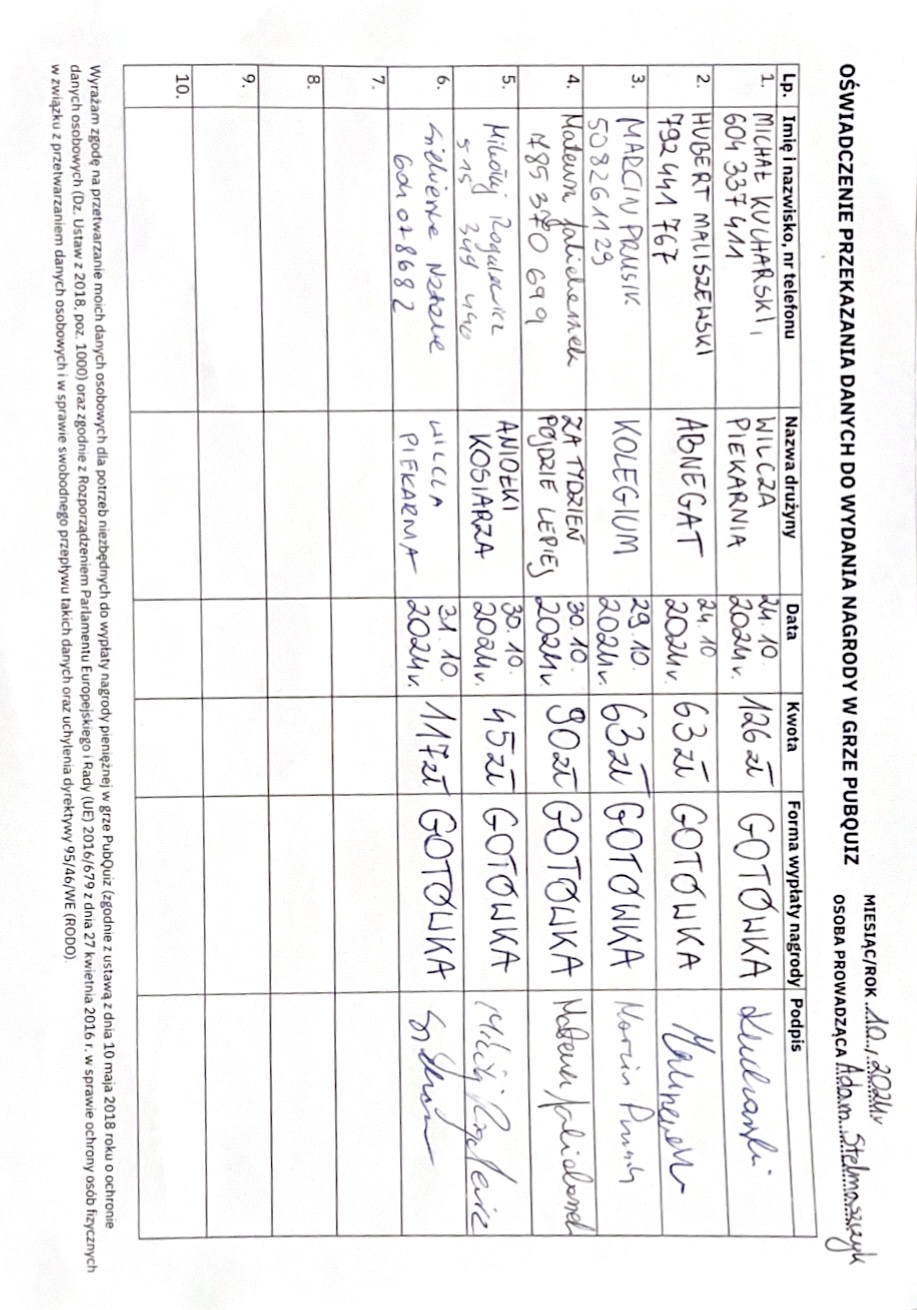 OŚWIADCZENIE PRZEKAZANIA DANYCH DO WYDANIA NAGRODY W GRZE PUBQUIZ
MIESIĄC/ROK 10./2024r
OSOBA PROWADZĄCA Adam Stelmaszczyk
Lp. Imię i nazwisko, nr telefonu Nazwa drużyny Data Kwota Forma wypłaty nagrody Podpis
1. MICHAŁ KUCHARSKI, WILCZA 24.10. 126 zł GOTÓWKA Kucharski
604 337 411 PIEKARNIA 2024r.
2. HUBERT MALISZEWSKI ABNEGAT 24.10 63 zł GOTÓWKA
792 441 767 2024r.
3. MARCIN PRUSIK KOLEGIUM 29.10. 63 zł GOTÓWKA Marcin
508261129 2024r.
4. Mateusz ZA TYDZIEŃ 30.10. 90 zł GOTÓWKA Mateusz
785 370 699 PÓJDZIE LEPIEJ 2024r.
5. Mikołaj ANIOŁKI 30.10. 45 zł GOTÓWKA Mikołaj
515 349 440 KOSIARZA 2024r.
6. WILCZA 31.10. 117 zł GOTÓWKA
604078682 PIEKARNIA 2024r.
7.
8.
9.
10.
Wyrażam zgodę na przetwarzanie moich danych osobowych dla potrzeb niezbędnych do wypłaty nagrody pieniężnej w grze PubQuiz (zgodnie z ustawą z dnia 10 maja 2018 roku o ochronie
danych osobowych (Dz. Ustaw z 2018, poz. 1000) oraz zgodnie z Rozporządzeniem Parlamentu Europejskiego i Rady (UE) 2016/679 z dnia 27 kwietnia 2016 r. w sprawie ochrony osób fizycznych
w związku z przetwarzaniem danych osobowych i w sprawie swobodnego przepływu takich danych oraz uchylenia dyrektywy 95/46/WE (RODO).